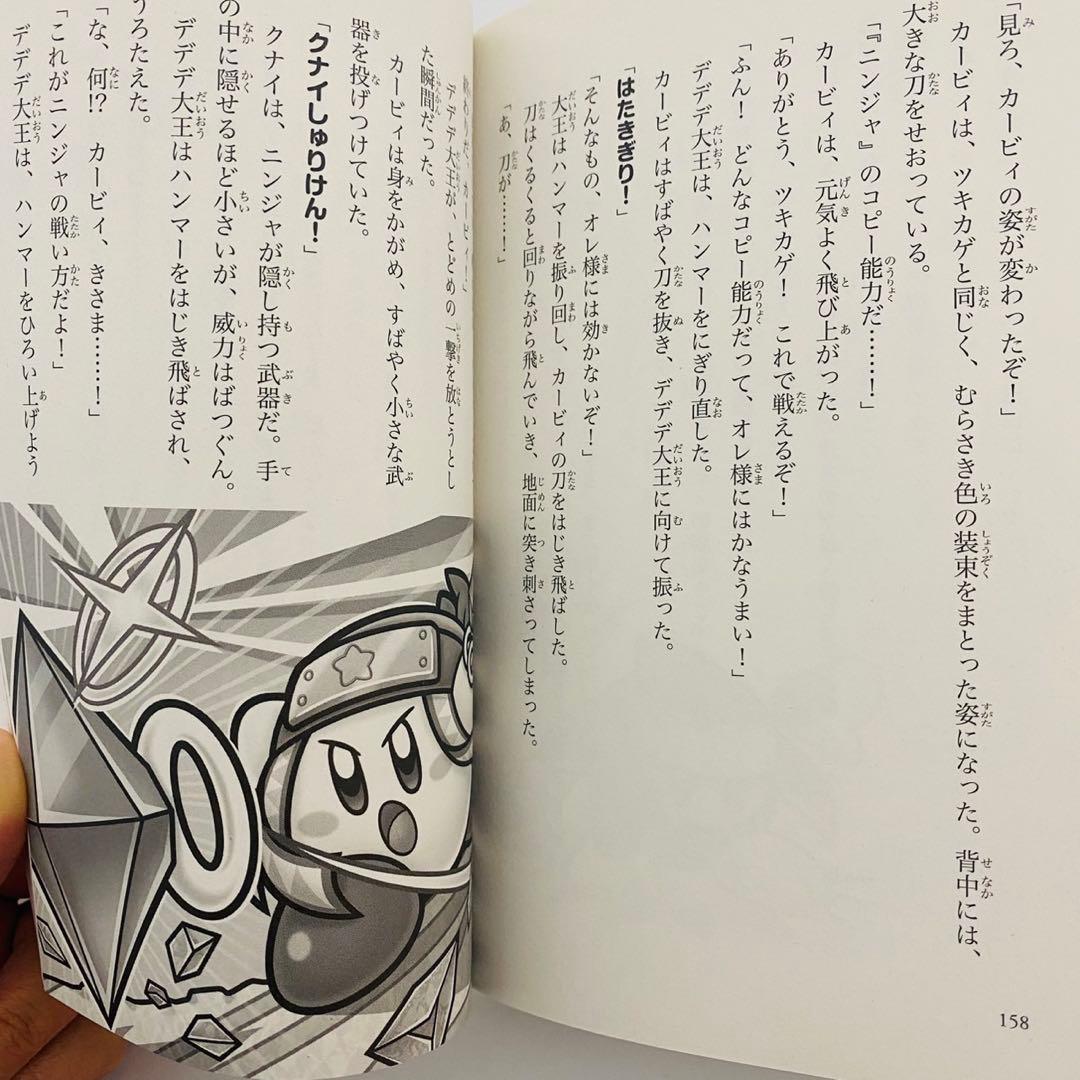 「見ろ、カービィの姿が変わったぞ！」
カービィは、ツキカゲと同じく、むらさき色の装束をまとった姿になった。背中には、
大きな刀をせおっている。
「『ニンジャ』のコピー能力だ……！」
カービィは、元気よく飛び上がった。
「ありがとう、ツキカゲ！　これで戦えるぞ！」
「ふん！　どんなコピー能力だって、オレ様にはかなうまい！」
デデデ大王は、ハンマーをにぎり直した。
カービィはすばやく刀を抜き、デデデ大王に向けて振った。
「はたきぎり！」
「そんなもの、オレ様には効かないぞ！」
大王はハンマーを振り回し、カービィの刀をはじき飛ばした。
刀はくるくると回りながら飛んでいき、地面に突き刺さってしまった。
「あ、刀が……！」
158
終わりだ、カービィ！」
デデデ大王が、とどめの一撃を放とうとし
た瞬間だった。
カービィは身をかがめ、すばやく小さな武
器を投げつけていた。
「クナイしゅりけん！」
クナイは、ニンジャが隠し持つ武器だ。手
の中に隠せるほど小さいが、威力はばつぐん。
デデデ大王はハンマーをはじき飛ばされ、
うろたえた。
「な、何!?　カービィ、きさま……！」
「これがニンジャの戦い方だよ！」
デデデ大王は、ハンマーをひろい上げよう